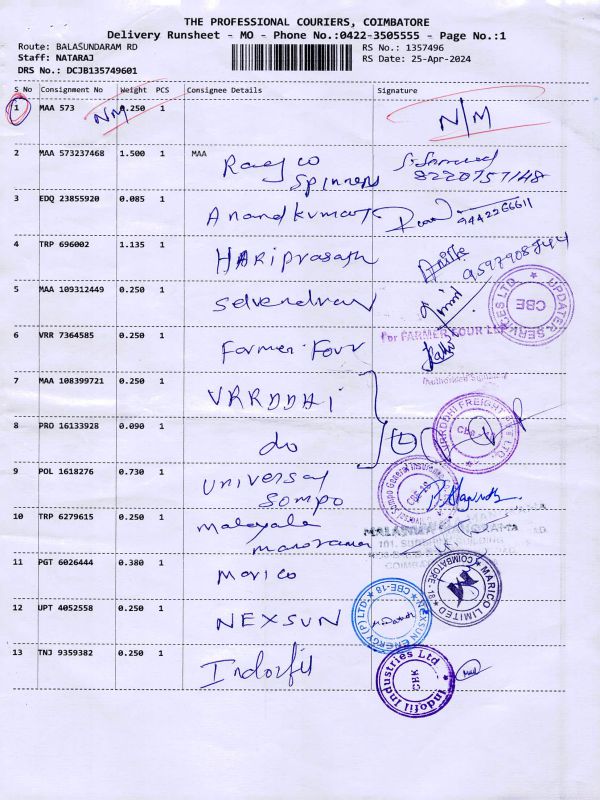 THE PROFESSIONAL COURIERS, COIMBATORE
Delivery Runsheet - MO - Phone No.:0422-3505555 - Page No.:1
Route: BALASUNDARAM RD RS No.: 1357496
Staff: NATARAJ RS Date: 25-Apr-2024
DRS No.: DCJB135749601
S No Consignment No Weight PCS Consignee Details Signature
1 MAA 573 NM 0.250 1 N/M
2 MAA 573237468 1.500 1 MAA
Spinners 8220757148
3 EDQ 23855920 0.085 1 Anandkumar 9442266611
4 TRP 696002 1.135 1 Hariprasath 9597908744
5 MAA 109312449 0.250 1 Selvendran
UPDATER SERVICES LTD CBE
For FARMER FOUR LLP
6 VRR 7364585 0.250 1 Farmer Four
Authorised Signatory
7 MAA 108399721 0.250 1 VRRDDHI
8 PRO 16133928 0.090 1 do
VRRDDHI FREIGHT PVT LTD. CBE
9 POL 1618276 0.730 1 Universal
Sompo
Universal Sompo General Insurance CBE-18
10 TRP 6279615 0.250 1 Malayala
manorama
MALAYALA MANORAMA
COIMBATORE
11 PGT 6026444 0.380 1 Marico
MARICO LIMITED COIMBATORE - 18
12 UPT 4052558 0.250 1 NEXSUN
NEXSUN ENERGY (P) LTD CBE-18
13 TNJ 9359382 0.250 1 Indofil
Indofil Industries Ltd CBE